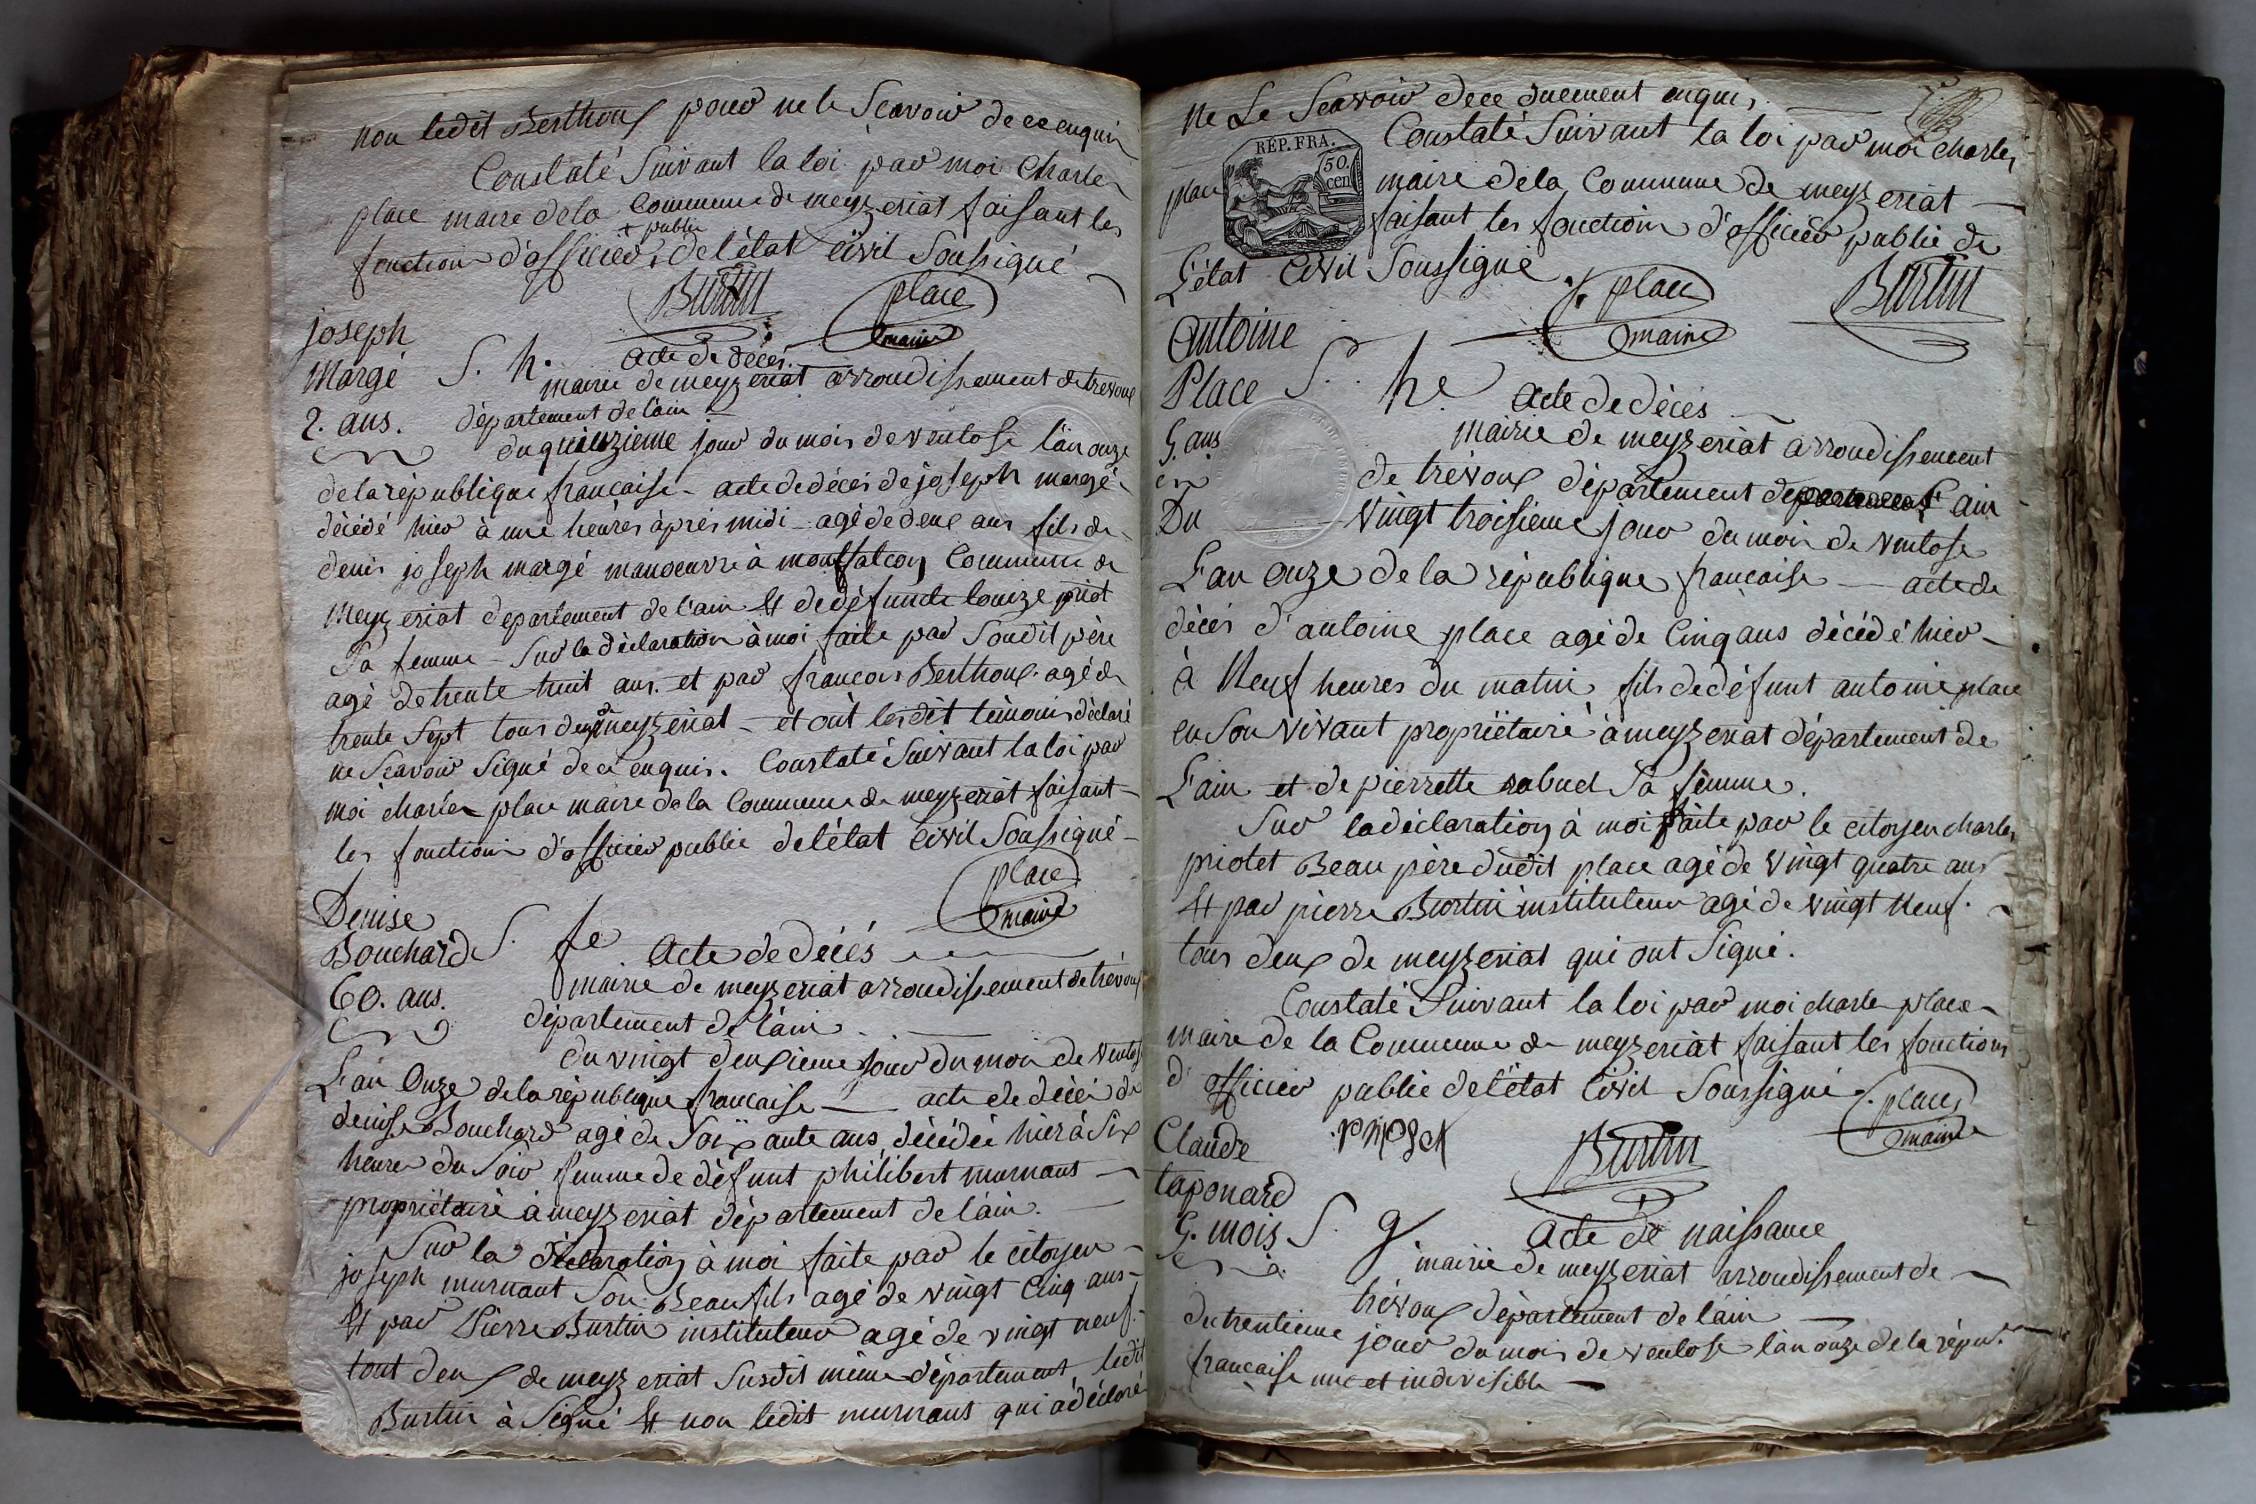 non ledit Berthoux pour ne le Scavoir de ce enquis
Constaté Suivant la loi par moi Charles
place maire de la Commune de meyzeriat faisant les
+ public
fonction d'officier + de l'état civil Soussigné
Burtin place
maire
joseph
Margé S. h. acte de décés
2. ans. mairie de meyzeriat arroudissement de trevoux
département de l'ain
du quinzieme jour du mois de ventose l'an onze
de la république francaise - acte de décés de joseph margé
décédé hier à une heures àprés midi - agé de deux ans fils de
denis joseph margé manoeuvre à montfalcon Commune de
Meyzeriat departement de l'ain et de défunte louize priot
Sa femme - Sur la déclaration à moi faite par Soudit père
agé de trente huit ans. et par francois Berthoux. agé de
trente Sept tous deux de meyzeriat - et ont lesdit témoins déclaré
ne Scavoir Signé de ce enquis. Constaté Suivant la loi par
moi charles place maire de la Commune de meyzeriat faisant
les fonctions d'officier public de l'état Civil Soussigné -
place
maire
Denise
Bouchard S. fe Acte de décés
60. ans. mairie de meyzeriat arroudissement de trévoux
département de l'ain
du vingt deuxieme jour du mois de ventose
L'an Onze de la république francaise — acte de décés de
denise Bouchard agé de Soixante ans, décédée hier à Six
heures du Soir femme de défunt philibert murnans —
propriétaire à meyzeriat département de l'ain.
Sur la déclaration à moi faite par le citoyen -
joseph murnant Son Beau fils agé de vingt Cinq ans -
et par Pierre Burtin instituteur agé de vingt neuf.
tout deux de meyzeriat Susdit même département, ledit
Burtin à Signé et non ledit murnans qui a déclaré
ne Le Scavoir de ce duement enquis.
RÉP. FRA.
50.
cen
Constaté Suivant la loi par moi charles
place maire de la Commune de meyzeriat —
faisant les fonction d'officier public de
L'état Civil Soussigné
place Burtin
maire
Antoine
Place S. he Acte de décés
5. ans Mairie de meyzeriat arroudissement
de trévoux département de L'ain
Du vingt troisieme jour du mois de ventose
L'an Onze de la république francaise — acte de
décés d'antoine place agé de Cinq ans décédé hier -
à Neuf heures du matin fils de défunt antoine place
en Son vivant propriétaire à meyzeriat département de
L'ain et de pierrette rabuel Sa femme.
Sur la déclaration à moi faite par le citoyen charles
priotet Beau père dudit place agé de vingt quatre ans
et par pierre Burtin instituteur agé de vingt Neuf.
tous deux de meyzeriat qui ont Signé.
Constaté Suivant la loi par moi charle place -
maire de la Commune de meyzeriat faisant les fonctions
d'officier public de l'état Civil Soussigné
place
maire
Burtin
Claude
taponard
9. mois S. g. Acte de naissance
mairie de meyzeriat arroudissement de —
trévoux département de l'ain
du trentieme jour du mois de ventose l'an onze de la répub.
francaise une et indivisible —